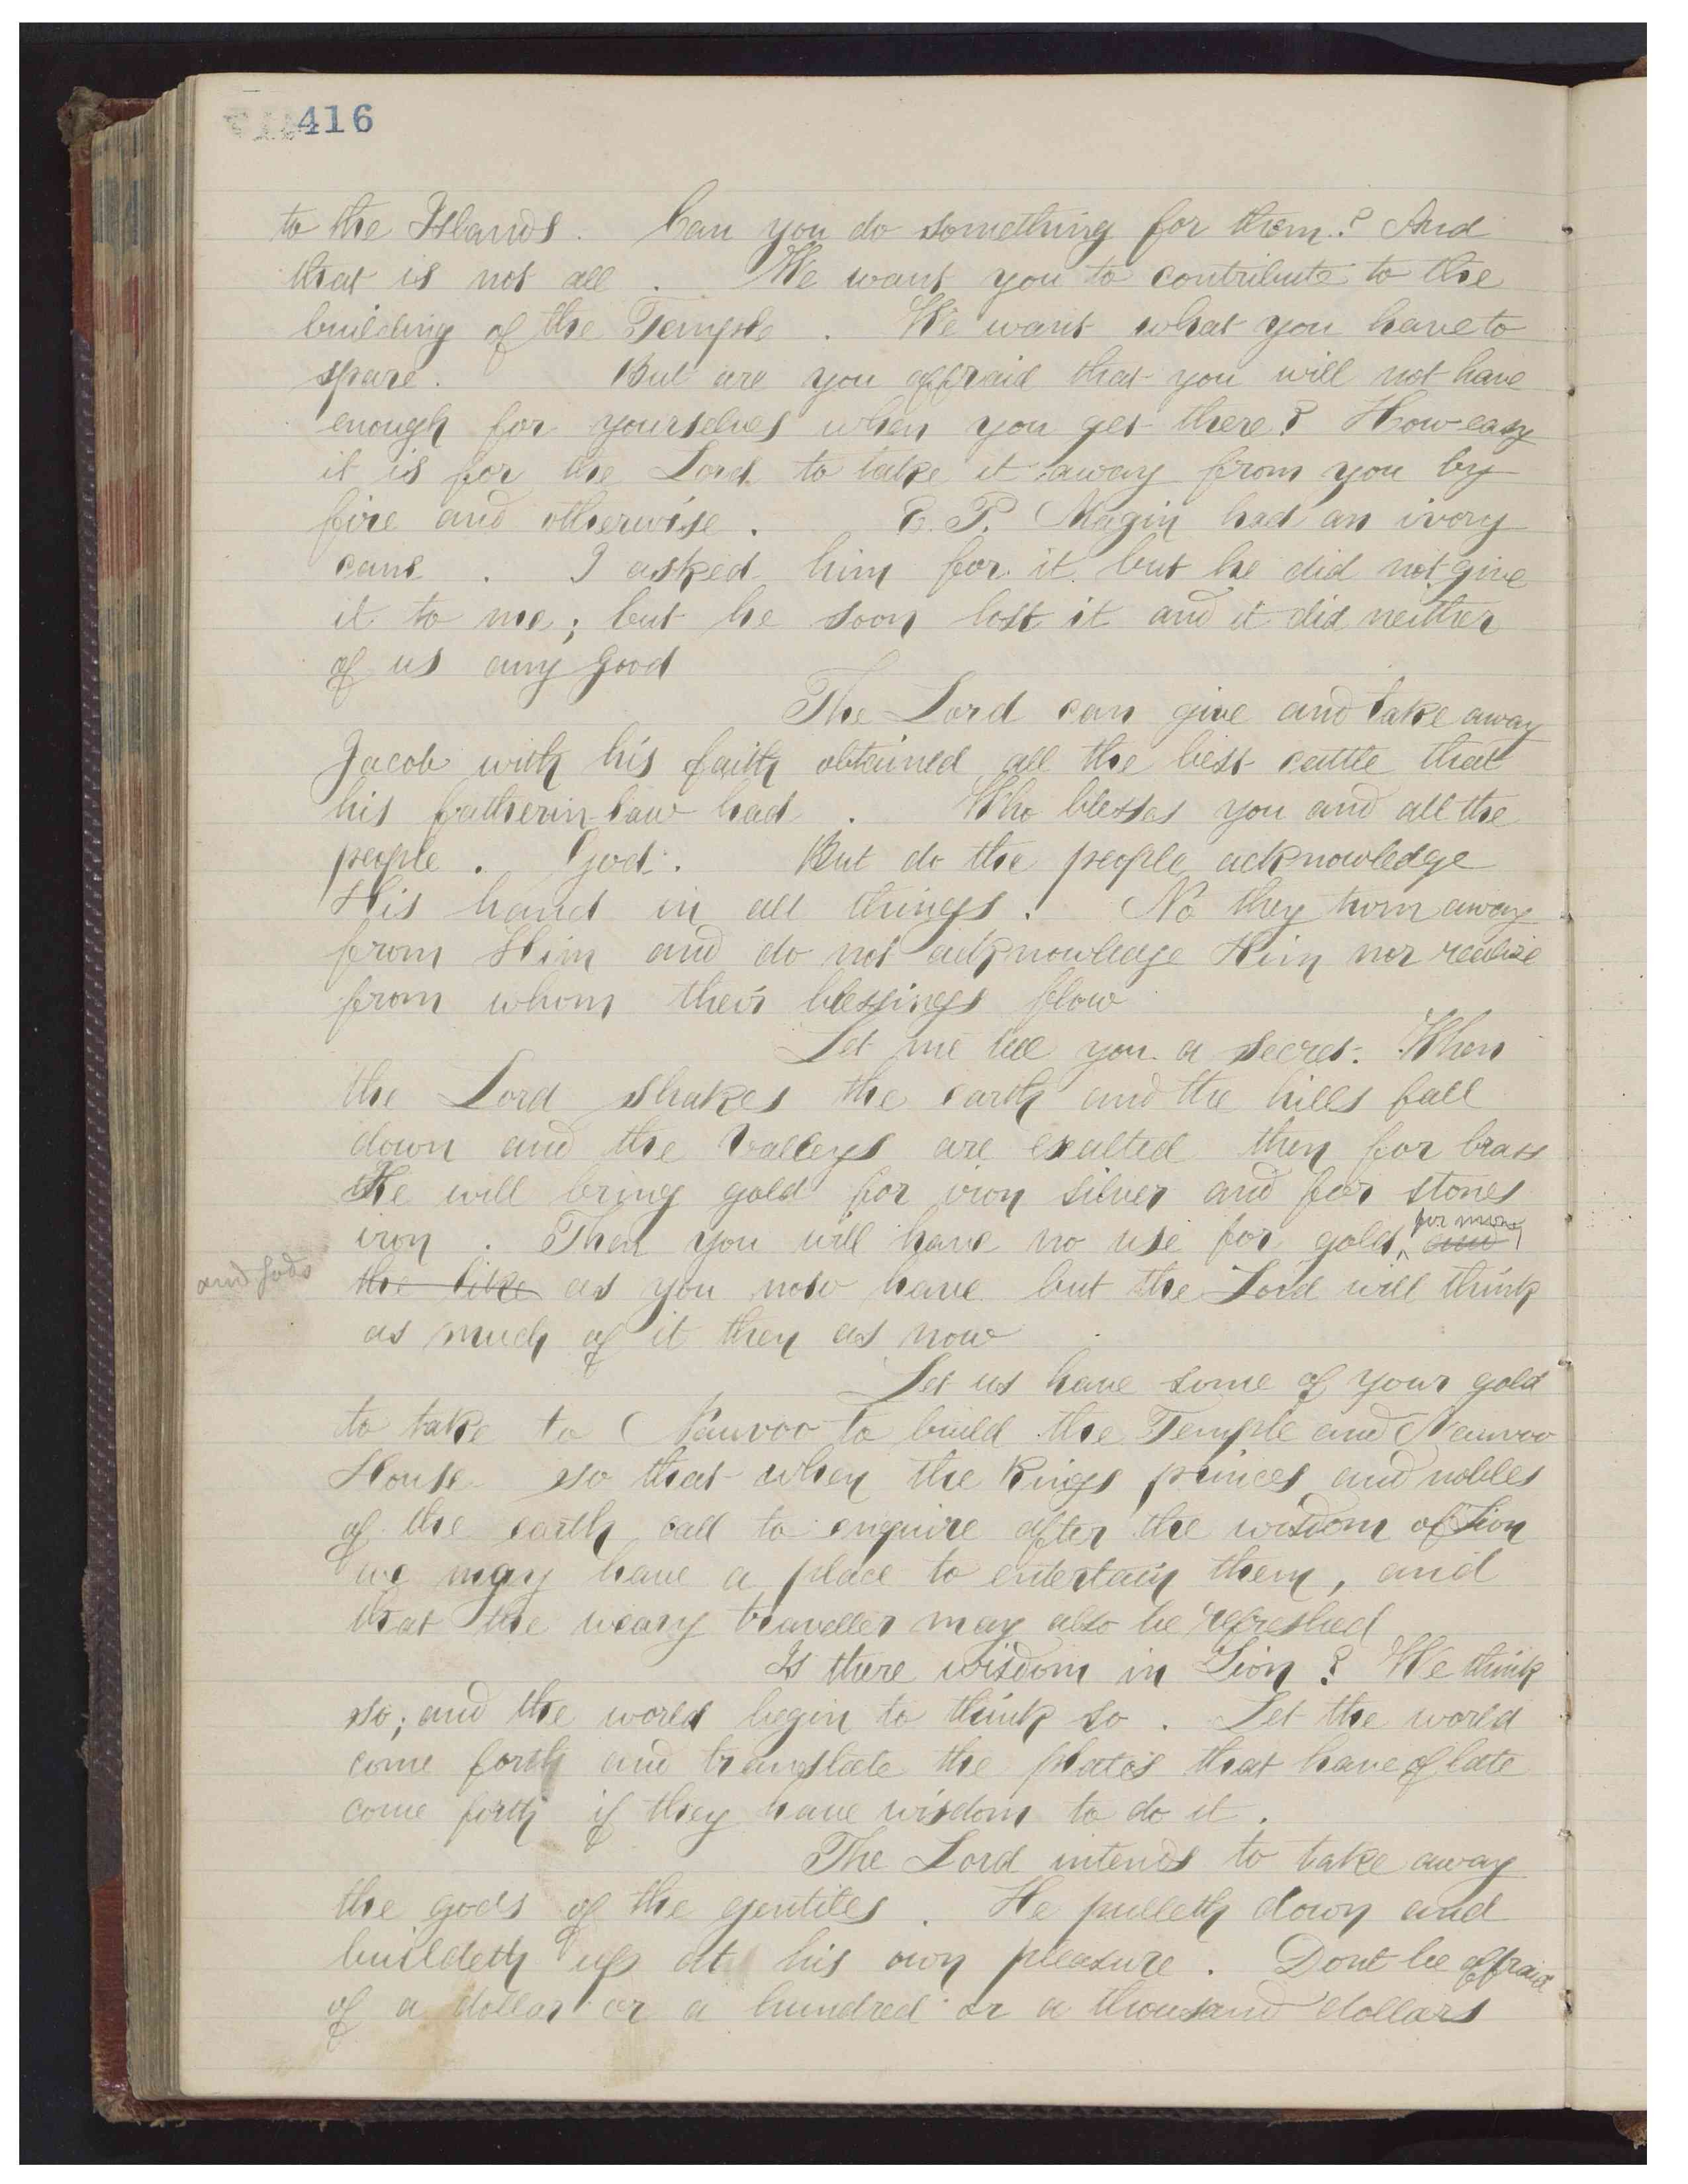 416
to the Islands. Can you do something for them? And
that is not all. We want you to contribute to the
building of the Temple. We want what you have to
spare. But are you affraid that you will not have
enough for yourselves when you get there? How easy
it is for the Lord to take it away from you by
fire and otherwise. E. P. Magin had an ivory
cane. I asked him for it but he did not give
it to me; but he soon lost it and it did neither
of us any good
The Lord can give and take away
Jacob with his faith obtained all the best cattle that
his father in law had. Who blesses you and all the
people. God. But do the people acknowledge
His hand in all things. No they turn away
from Him and do not acknowledge Him nor realize
from whom their blessings flow
Let me tell you a secret. When
the Lord shakes the earth and the hills fall
down and the valleys are exalted then for brass
He will bring gold for iron silver and for stones
for
iron. Then you will have no use for gold, and
and gods
the like as you now have but the Lord will think
as much of it then as now
Let us have some of your gold
to take to Nauvoo to build the Temple and Nauvoo
House so that when the kings princes and nobles
of the earth call to enquire after the wisdom of Zion
we may have a place to entertain them, and
that the weary traveller may also be refreshed
Is there wisdom in Zion? We think
so; and the world begin to think so. Let the world
come forth and translate the plates that have of late
come forth if they have wisdom to do it.
The Lord intends to take away
the gods of the gentiles. He pulleth down and
buildeth up at his own pleasure. Dont be affraid
of a dollar or a hundred or a thousand dollars